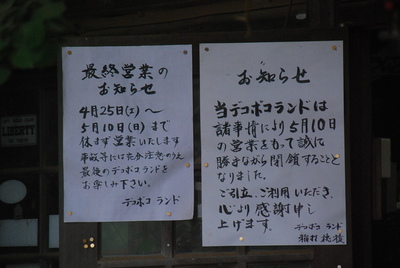 最終営業の
お知らせ
4月25日(土)〜
5月10日(日)まで
休まず営業いたします
事故等には充分注意のうえ
最後のデコボコランドを
お楽しみ下さい。
デコボコ ランド
お知らせ
当デコボコランドは
諸事情により5月10日
の営業をもって誠に
勝手ながら閉鎖することと
なりました。
ご引立、ご利用いただき、
心より感謝申し
上げます。
デコボコ ランド
稲村
LIBERTY